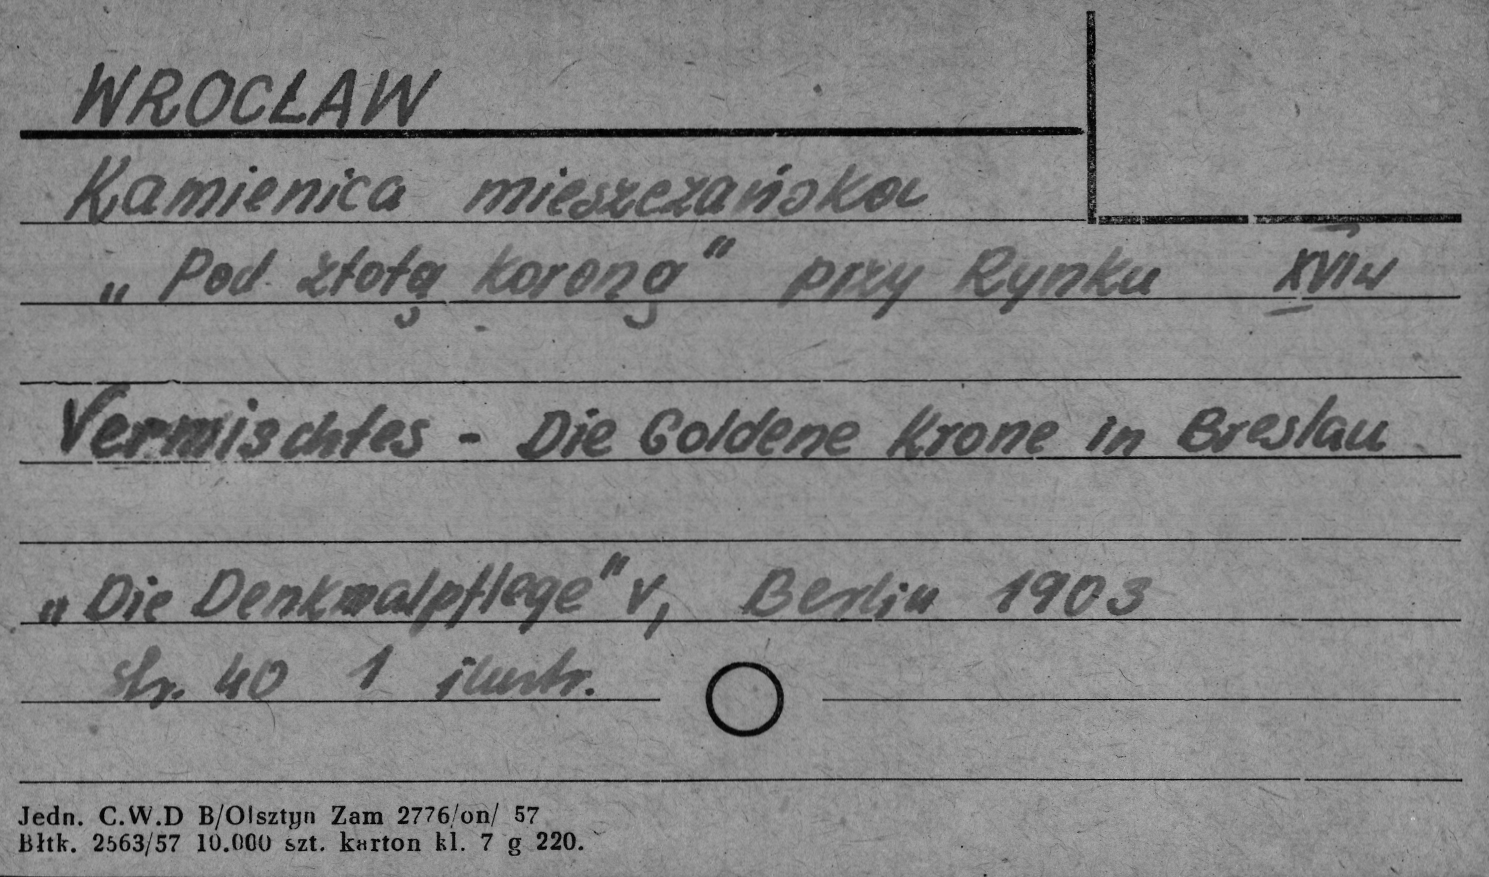 WROCŁAW
Kamienica mieszczańska
„Pod złotą koroną" przy Rynku XVI w
Vermischtes - Die Goldene Krone in Breslau
„Die Denkmalpflege" V, Berlin 1903
str. 40 1 ilustr.
Jedn. C.W.D B/Olsztyn Zam 2776/on/ 57
Błtk. 2563/57 10.000 szt. karton kl. 7 g 220.